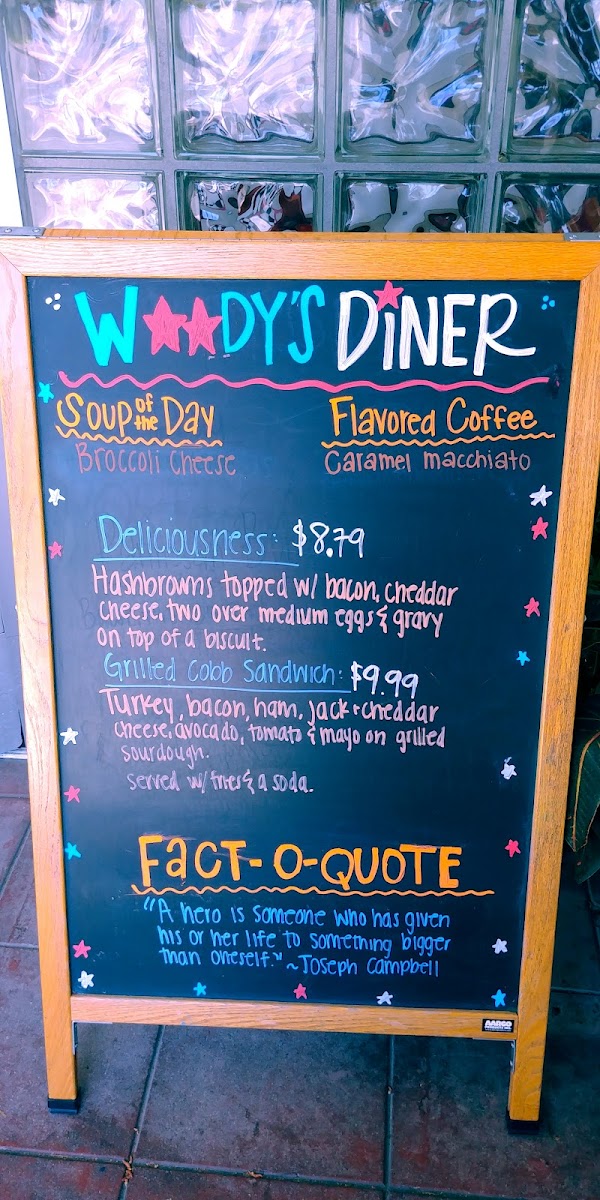 WOODY'S DINER
Soup of the Day
Broccoli Cheese
Flavored Coffee
Caramel macchiato
Deliciousness: $8.79
Hashbrowns topped w/ bacon, cheddar
cheese, two over medium eggs & gravy
on top of a biscuit.
Grilled Cobb Sandwich: $9.99
Turkey, bacon, ham, jack + cheddar
cheese, avocado, tomato & mayo on grilled
sourdough.
served w/ fries & a soda.
FACT-O-QUOTE
"A hero is someone who has given
his or her life to something bigger
than oneself." ~Joseph Campbell
AARCO